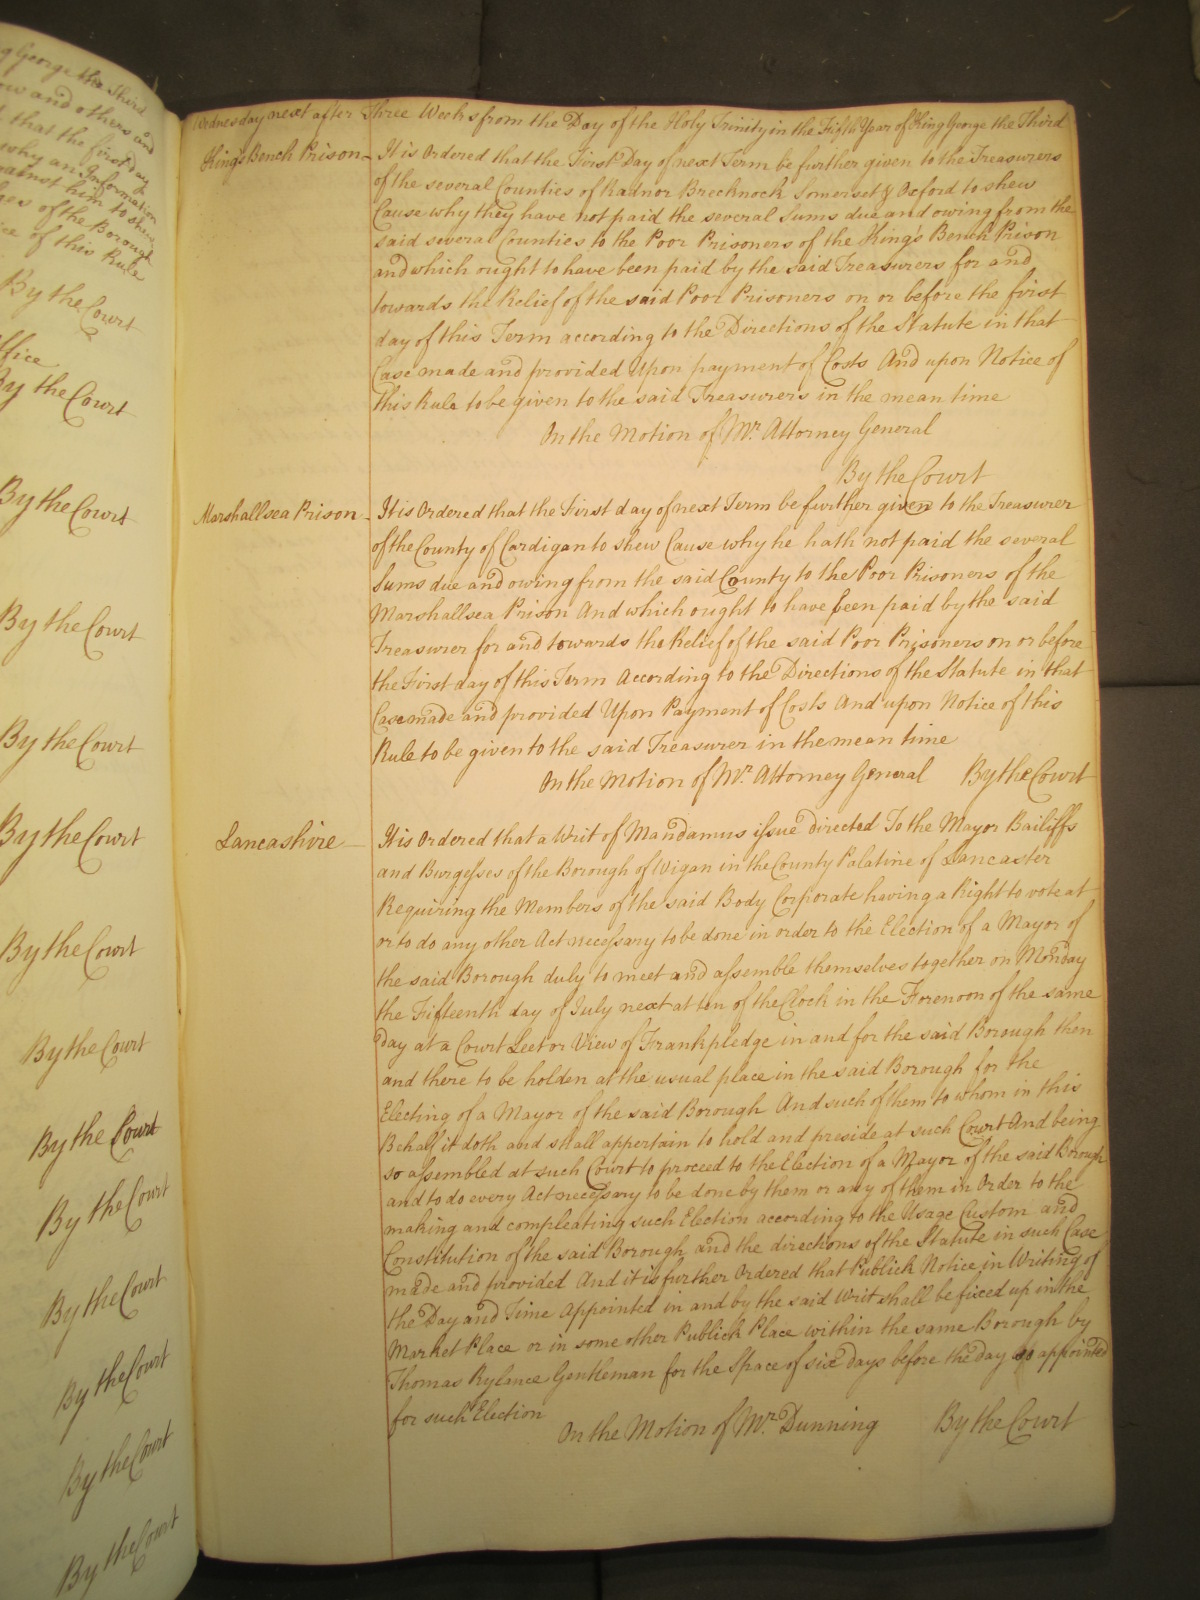 g George the Third
ow and others and
that the first day
why an Information
against him to shew
ges of the Borough
ice of this Rule
By the Court
ffice
By the Court
By the Court
By the Court
By the Court
By the Court
By the Court
By the Court
By the Court
By the Court
By the Court
By the Court
By the Court
By the Court
Wednesday next after Three Weeks from the Day of the Holy Trinity in the Fifth Year of King George the Third
King's Bench Prison
It is Ordered that the First Day of next Term be further given to the Treasurers
of the several Counties of Radnor Brecknock Somerset & Oxford to shew
Cause why they have not paid the several Sums due and owing from the
said several Counties to the Poor Prisoners of the King's Bench Prison
and which ought to have been paid by the said Treasurers for and
towards the Relief of the said Poor Prisoners on or before the first
day of this Term according to the Directions of the Statute in that
Case made and provided Upon payment of Costs And upon Notice of
this Rule to be given to the said Treasurers in the mean time
On the Motion of Mr. Attorney General
By the Court
Marshallsea Prison
It is Ordered that the First day of next Term be further given to the Treasurer
of the County of Cardigan to shew Cause why he hath not paid the several
Sums due and owing from the said County to the Poor Prisoners of the
Marshallsea Prison And which ought to have been paid by the said
Treasurer for and towards the Relief of the said Poor Prisoners on or before
the First day of this Term According to the Directions of the Statute in that
Case made and provided Upon Payment of Costs And upon Notice of this
Rule to be given to the said Treasurer in the mean time
On the Motion of Mr. Attorney General By the Court
Lancashire
It is Ordered that a Writ of Mandamus issue directed To the Mayor Bailiffs
and Burgesses of the Borough of Wigan in the County Palatine of Lancaster
Requiring the Members of the said Body Corporate having a Right to vote at
or to do any other Act necessary to be done in order to the Election of a Mayor of
the said Borough duly to meet and assemble themselves together on Monday
the Fifteenth day of July next at ten of the Clock in the Forenoon of the same
day at a Court Leet or View of Frankpledge in and for the said Borough then
and there to be holden at the usual place in the said Borough for the
Electing of a Mayor of the said Borough And such of them to whom in this
Behalf it doth and shall appertain to hold and preside at such Court And being
so assembled at such Court to proceed to the Election of a Mayor of the said Borough
and to do every Act necessary to be done by them or any of them in Order to the
making and compleating such Election according to the Usage Custom and
Constitution of the said Borough and the directions of the Statute in such Case
made and provided And it is further Ordered that Publick Notice in Writing of
the Day and Time Appointed in and by the said Writ shall be fixed up in the
Market Place or in some other Publick Place within the same Borough by
Thomas Rylance Gentleman for the Space of six days before the day so appointed
for such Election
On the Motion of Mr. Dunning By the Court